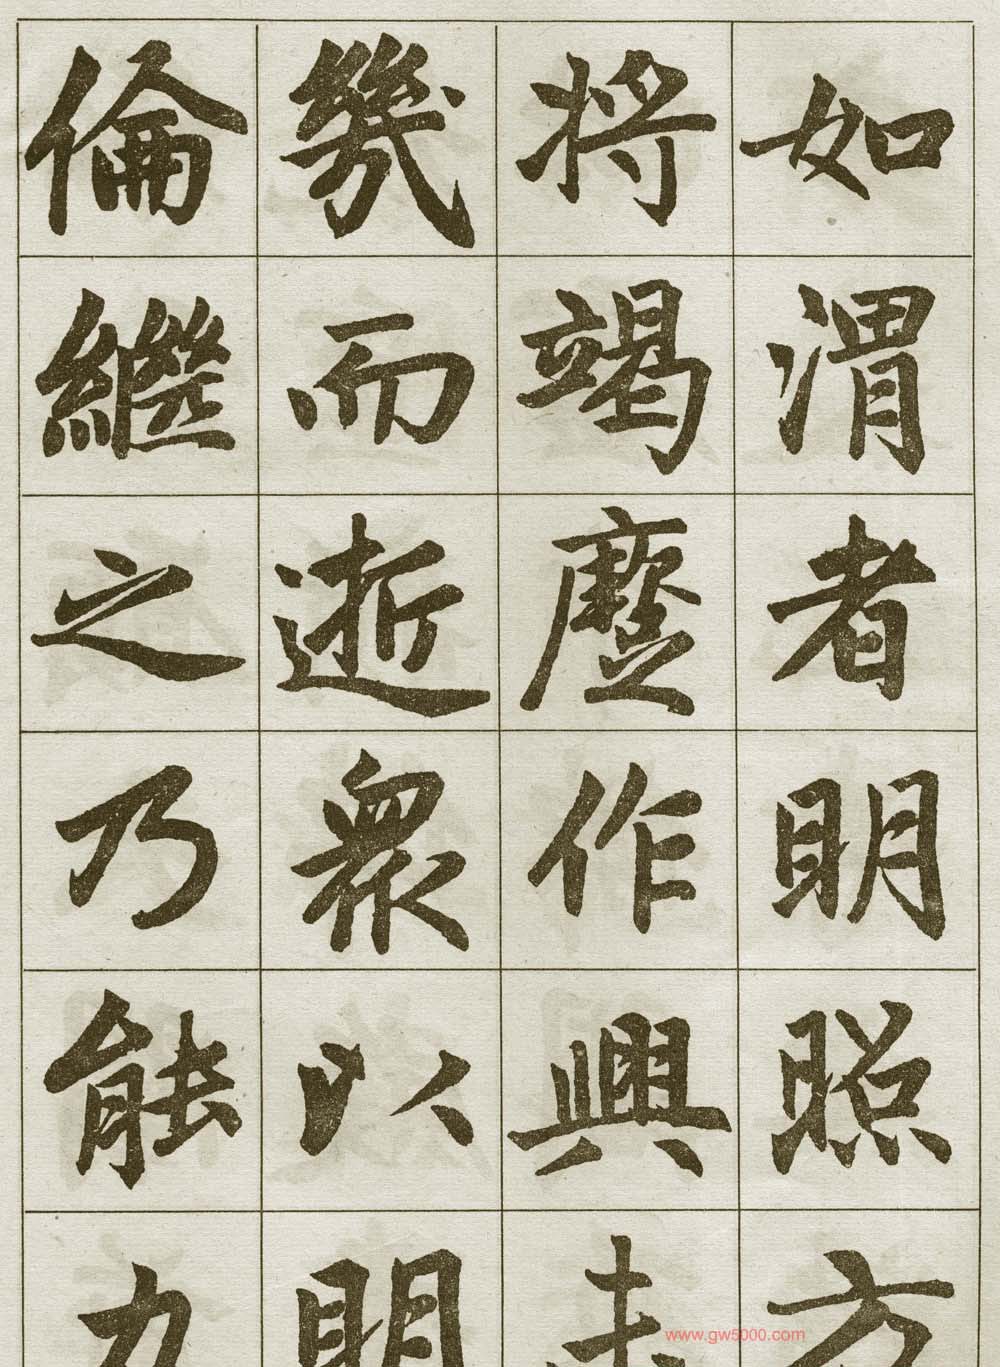 如渭者明照方
将竭塵作興去
幾而逝衆以明
倫繼之乃能力
www.gw5000.com